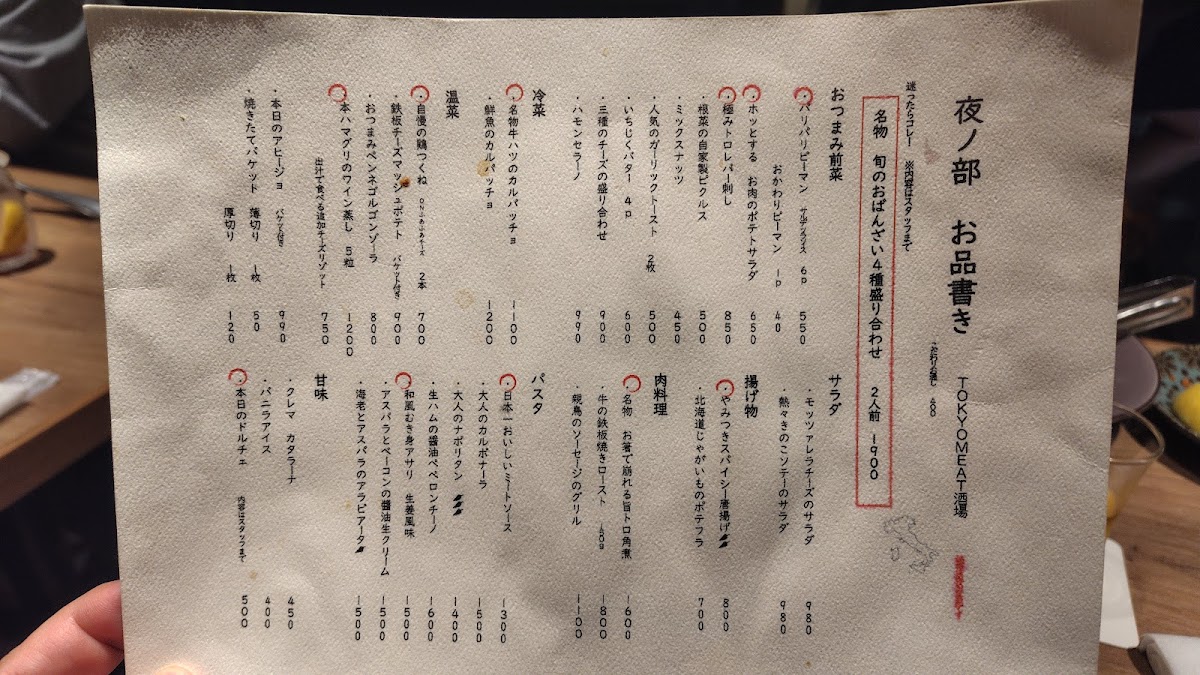 夜ノ部 お品書き TOKYOMEAT酒場
こだわりお通し 400
迷ったらコレー ※内容はスタッフまで
名物 旬のおばんざい4種盛り合わせ 2人前 1900
おつまみ前菜
・パリパリピーマン サルデッソソイス 6P 550
おかわりピーマン 1P 40
・ホッとする お肉のポテトサラダ 650
・極みトロレバー刺し 850
・根菜の自家製ピクルス 500
・ミックスナッツ 450
・人気のガーリックトースト 2枚 500
・いちじくバター 4P 600
・三種のチーズの盛り合わせ 900
・ハモンセラーノ 990
冷菜
・名物牛ハツのカルパッチョ 1100
・鮮魚のカルパッチョ 1200
温菜
・自慢の鶏つくね ONふあふあチーズ 2本 700
・鉄板チーズマッシュポテト バケット付き 900
・おつまみペンネゴルゴンゾーラ 800
・本ハマグリのワイン蒸し 5粒 1200
出汁で食べる追加チーズリゾット 750
・本日のアヒージョ バケット付き 990
・焼きたてバケット 薄切り 1枚 50
厚切り 1枚 120
サラダ
・モッツァレラチーズのサラダ 980
・熱々きのこソテーのサラダ 980
揚げ物
・やみつきスパイシー唐揚げ 800
・北海道じゃがいものポテフラ 700
肉料理
・名物 お箸で崩れる旨トロ角煮 1600
・牛の鉄板焼きロースト 140g 1800
・親鳥のソーセージのグリル 1100
パスタ
・日本一おいしいミートソース 1300
・大人のカルボナーラ 1500
・大人のナポリタン 1400
・生ハムの醤油ペペロンチーノ 1600
・和風むき身アサリ 生姜風味 1500
・アスパラとベーコンの醤油生クリーム 1500
・海老とアスパラのアラビアータ 1500
甘味
・クレマ カタラーナ 450
・バニラアイス 400
・本日のドルチェ 内容はスタッフまで 500